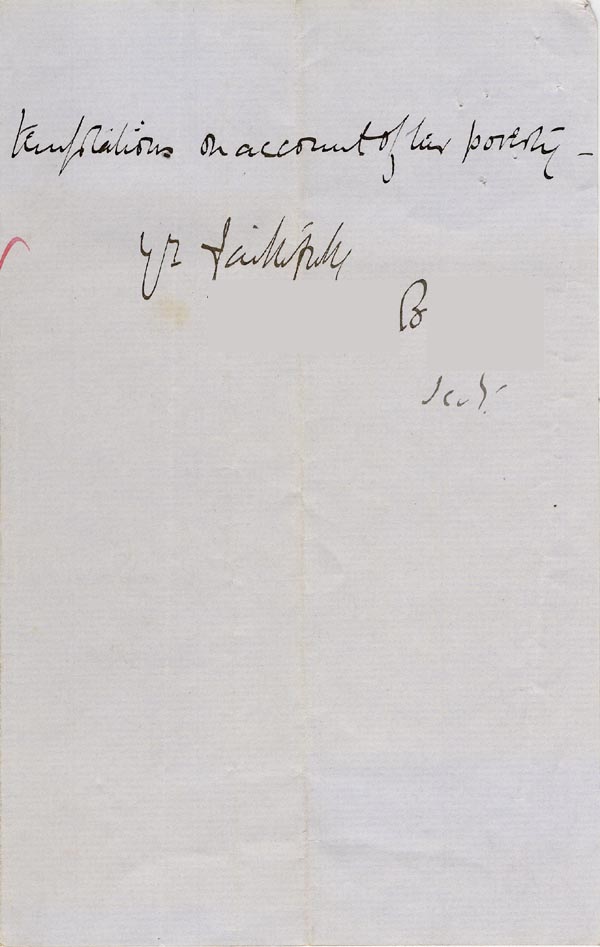 temptations on account of her poverty –
yr faithfully
B
Secy.